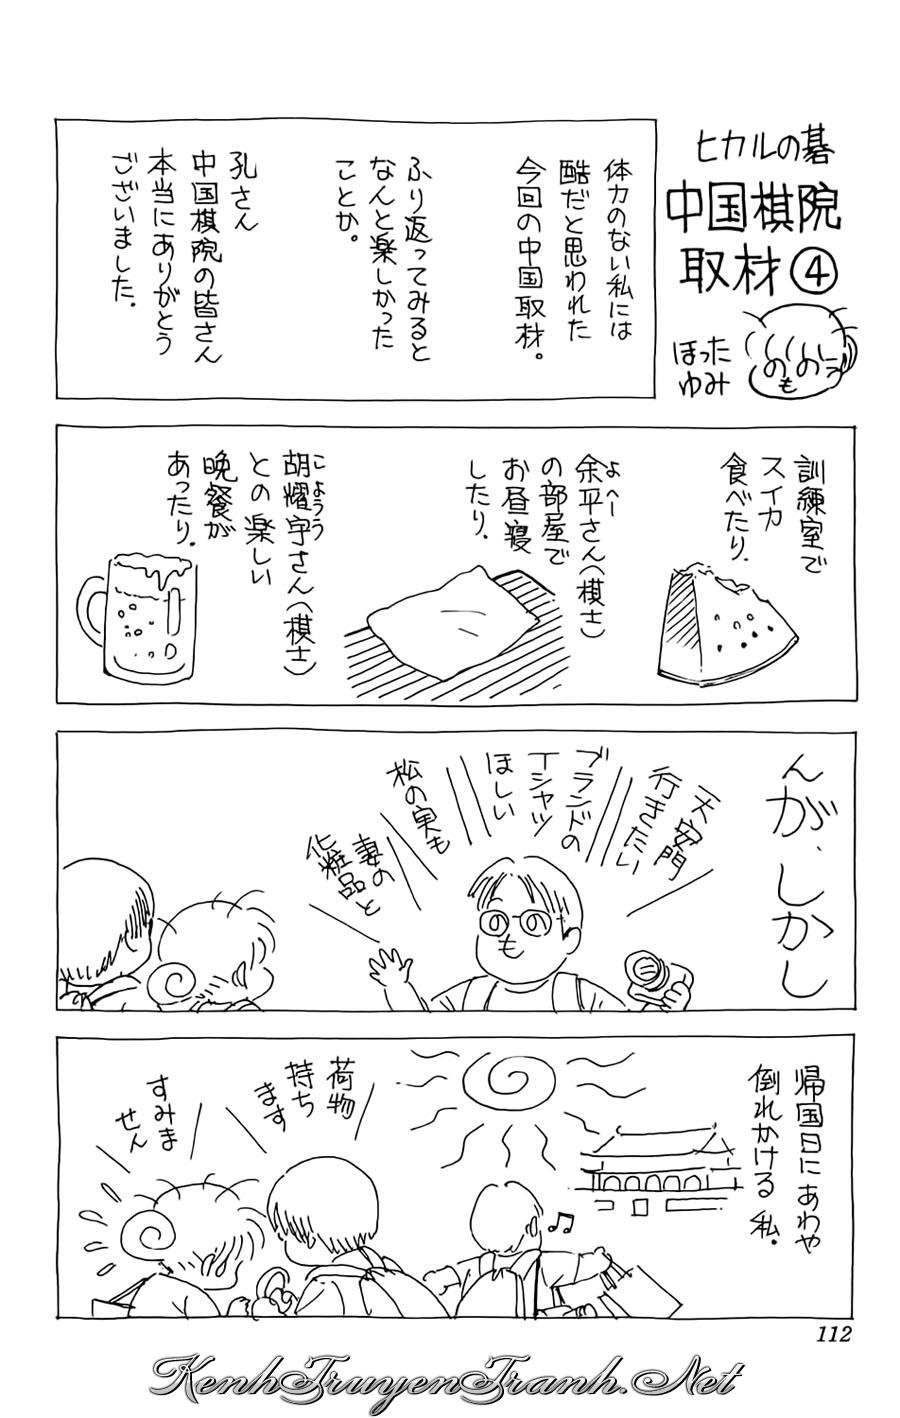 ヒカルの碁
中国棋院
取材④
ほった
ゆみ
体力のない私には
酷だと思われた
今回の中国取材。
ふり返ってみると
なんと楽しかった
ことか。
孔さん
中国棋院の皆さん
本当にありがとう
ございました.
訓練室で
スイカ
食べたり.
余平さん(棋士)
よへー
の部屋で
お昼寝
したり.
胡耀宇さん(棋士)
こようう
との楽しい
晩餐が
あったり.
んが、しかし
天安門
行きたい
ブランドの
Tシャツ
ほしい
松の実も
妻の
化粧品と
帰国日にあわや
倒れかける 私.
荷物
持ち
ます
すみま
せん
112
KenhTruyenTranh.Net